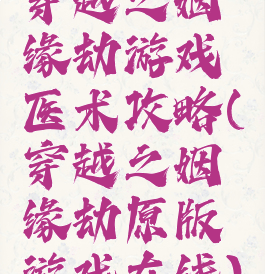 穿越之姻
缘劫游戏
医术攻略(
穿越之姻
缘劫原版
游戏在线)